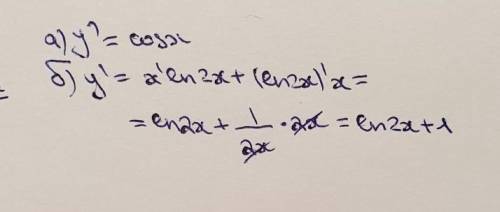 а) y' = cosx
б) y' = x' ln2x + (ln2x)' x =
= ln2x + 1/2x · 2x = ln2x + 1